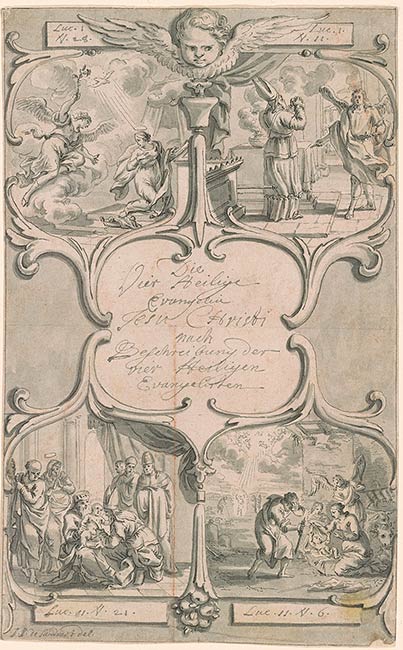 Luc. 1
V. 28.
Luc. 1.
V. 11.
Die
Vier Heilige
Evangelia
Jesu Christi
nach
Beschreibung der
vier Heiligen
Evangelisten
Luc. 11. V. 21.
Luc. 11. V. 6.
del.